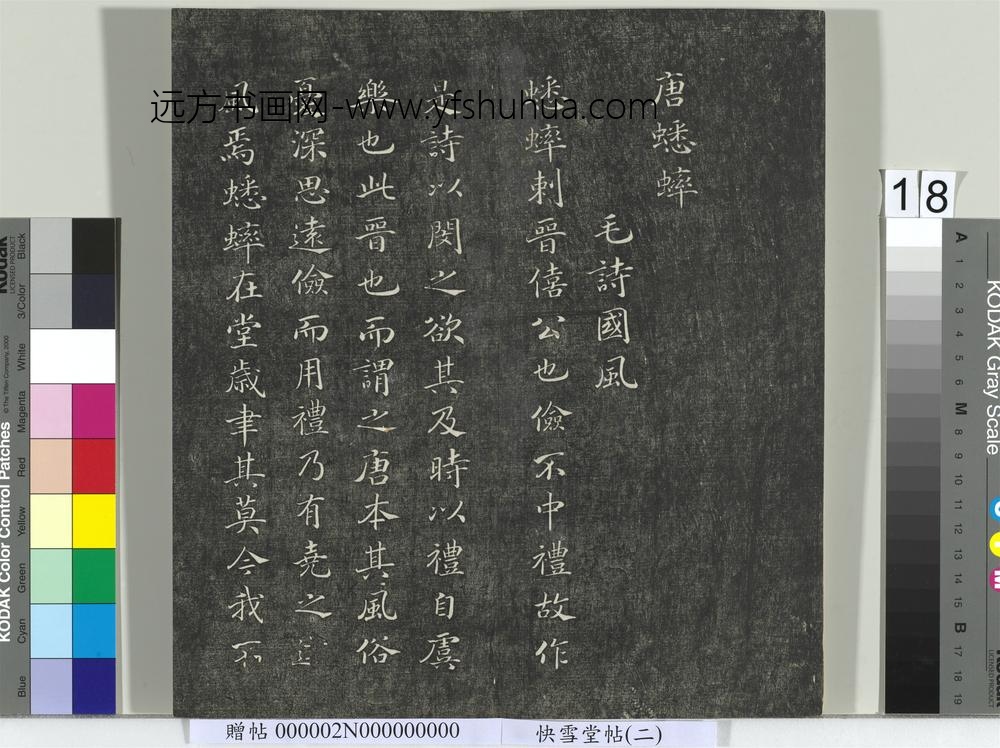 唐蟋蟀
毛詩國風
蟋蟀刺晉僖公也儉不中禮故作
是詩以閔之欲其及時以禮自虞
樂也此晉也而謂之唐本其風俗
憂深思遠儉而用禮乃有堯之遺
風焉蟋蟀在堂歲聿其莫今我不
远方书画网-www.yfshuhua.com
18
贈帖 000002N000000000
快雪堂帖(二)
KODAK Color Control Patches
© The Tiffen Company, 2000
Kodak
LICENSED PRODUCT
Blue
Cyan
Green
Yellow
Red
Magenta
White
3/Color
Black
KODAK Gray Scale
A 1 2 3 4 5 6 M 8 9 10 11 12 13 14 15 B 17 18 19